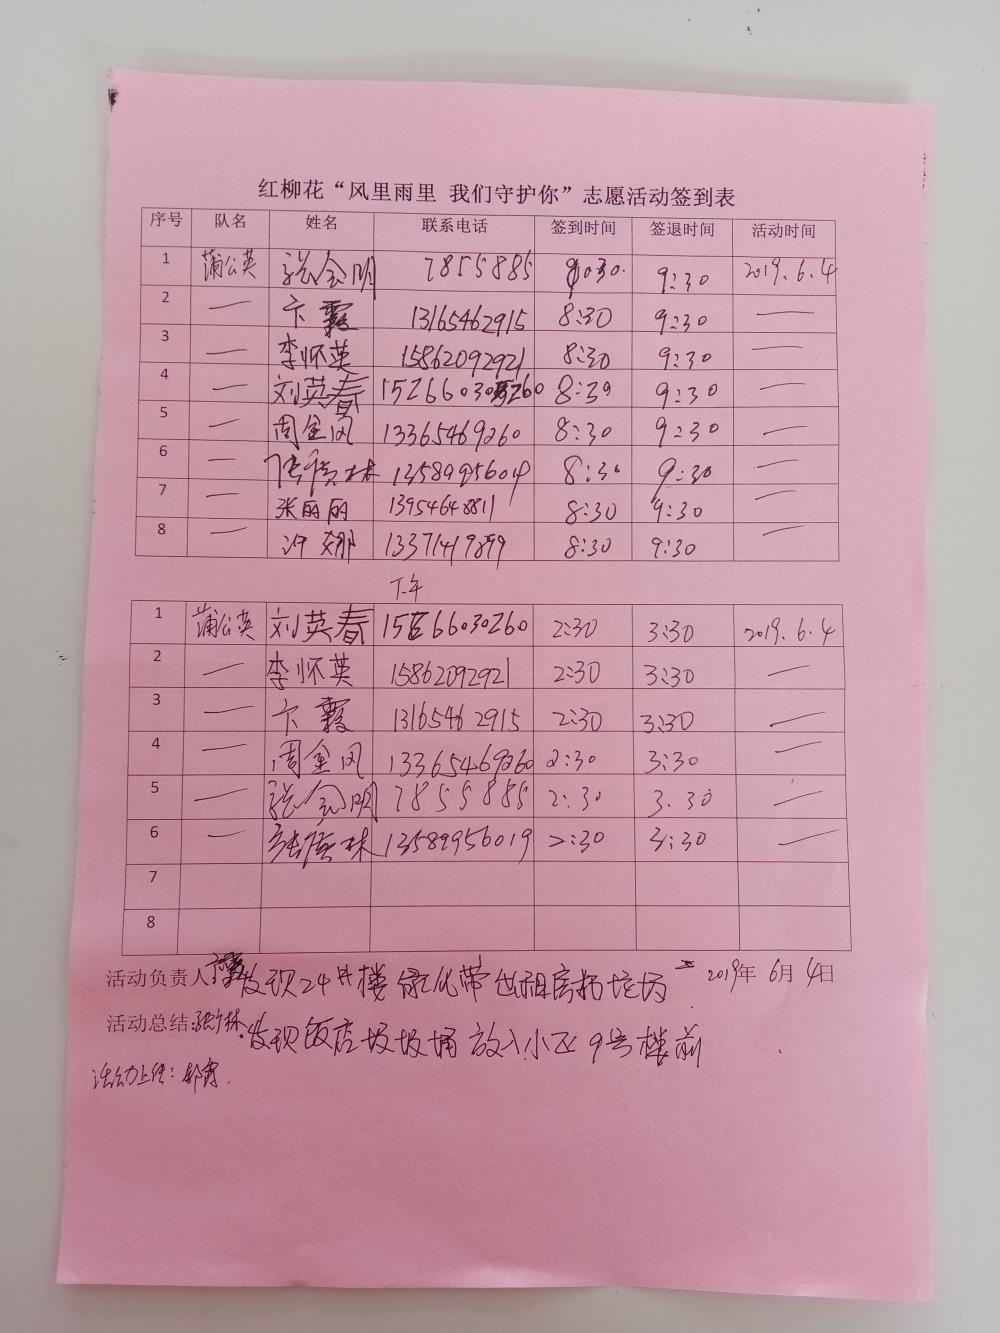 红柳花“风里雨里 我们守护你”志愿活动签到表
序号 队名 姓名 联系电话 签到时间 签退时间 活动时间
1 蒲公英 张金明 7855885 8:30 9:30 2019.6.4
2 — 卞霞 13165462915 8:30 9:30 —
3 — 李怀英 15862092921 8:30 9:30 —
4 — 刘英春 15266030260 8:30 9:30 —
5 — 周金凤 13365469260 8:30 9:30 —
6 — 林 8:30 9:30 —
7 — 张丽丽 13954648811 8:30 9:30 —
8 — 娜 13371419899 8:30 9:30 —
下午
1 蒲公英 刘英春 15266030260 2:30 3:30 2019.6.4
2 — 李怀英 15862092921 2:30 3:30 —
3 — 卞霞 13165462915 2:30 3:30 —
4 — 周金凤 13365469260 2:30 3:30 —
5 — 张金明 7855885 2:30 3:30 —
6 — 林 13589956019 2:30 3:30 —
7
8
活动负责人: 发现24#楼绿化带出租房扔垃圾 2019年 6月 4日
活动总结: 发现饭店垃圾桶放入小区9号楼前